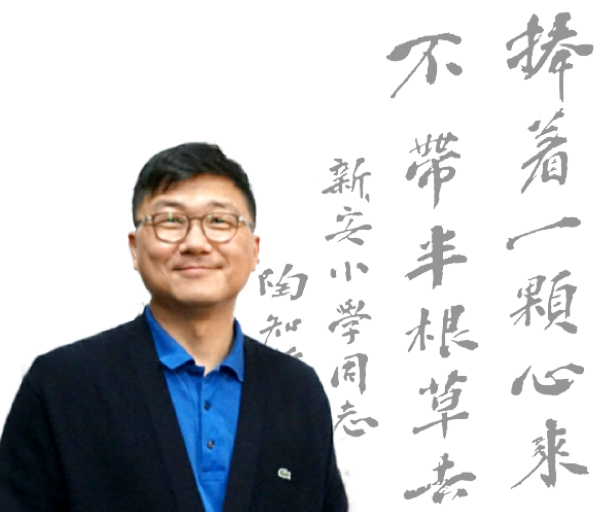 捧着一顆心來
不帶半根草去
新安小學同志
陶知